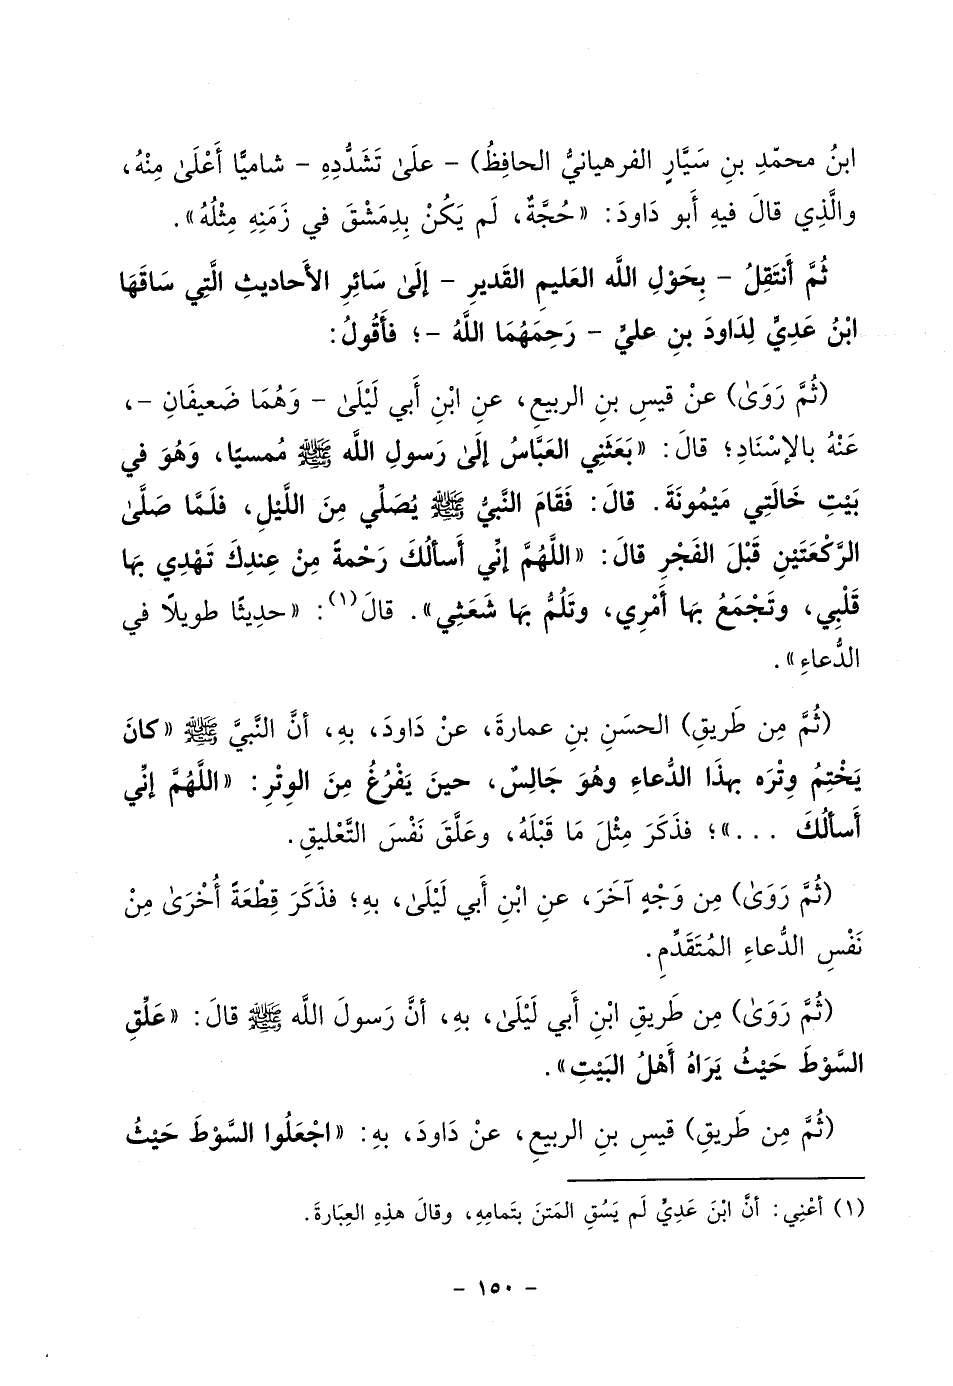 ابنُ محمّدِ بنِ سَيَّارٍ الفرهيانيُّ الحافِظُ) - علَىٰ تَشَدُّدِهِ - شاميًّا أَعْلَىٰ مِنْهُ،
والَّذِي قالَ فيهِ أبو دَاودَ: «حُجَّةٌ، لَم يَكُنْ بِدِمَشْقَ في زَمَنِهِ مِثْلُهُ».
ثُمَّ أَنتَقِلُ - بِحَوْلِ اللَّه العَليمِ القَديرِ - إلَىٰ سَائِرِ الأَحاديثِ الَّتِي سَاقَهَا
ابْنُ عَدِيٍّ لِدَاودَ بنِ عليٍّ - رَحِمَهُمَا اللَّهُ -؛ فأَقُولُ:
(ثُمَّ رَوَىٰ) عنْ قيسِ بنِ الربيعِ، عنِ ابْنِ أَبي لَيْلَىٰ - وَهُمَا ضَعيفَانِ -،
عَنْهُ بالإسْنَادِ؛ قالَ: «بَعَثَنِي العَبَّاسُ إلَىٰ رَسولِ اللَّه ﷺ مُمسيًا، وَهُوَ في
بَيْتِ خَالَتِي مَيْمُونَةَ. قالَ: فَقَامَ النَّبيُّ ﷺ يُصَلِّي مِنَ اللَّيْلِ، فلَمَّا صَلَّىٰ
الرَّكْعَتَيْنِ قَبْلَ الفَجْرِ قالَ: «اللَّهُمَّ إنِّي أَسألُكَ رَحْمةً مِنْ عِندِكَ تَهْدِي بهَا
قَلْبِي، وتَجْمَعُ بهَا أَمْرِي، وتَلُمُّ بهَا شَعَثِي». قالَ(١): «حدِيثًا طويلًا في
الدُّعاءِ».
(ثُمَّ مِن طَريقِ) الحسَنِ بنِ عمارةَ، عنْ دَاودَ، بهِ، أنَّ النَّبيَّ ﷺ «كانَ
يَخْتِمُ وِتْرَه بهذَا الدُّعاءِ وهُوَ جَالِسٌ، حينَ يَفْرُغُ مِنَ الوِتْرِ: «اللَّهُمَّ إنِّي
أَسألُكَ ...»؛ فذَكَرَ مِثْلَ مَا قَبْلَهُ، وعَلَّقَ نَفْسَ التَّعْليقِ.
(ثُمَّ رَوَىٰ) مِن وَجْهٍ آخَرَ، عنِ ابْنِ أَبي لَيْلَىٰ، بهِ؛ فذَكَرَ قِطْعَةً أُخْرَىٰ مِنْ
نَفْسِ الدُّعاءِ المُتَقَدِّمِ.
(ثُمَّ رَوَىٰ) مِن طَريقِ ابْنِ أَبي لَيْلَىٰ، بهِ، أنَّ رَسولَ اللَّه ﷺ قالَ: «عَلِّقِ
السَّوْطَ حَيْثُ يَرَاهُ أَهْلُ البَيْتِ».
(ثُمَّ مِن طَريقِ) قيسِ بنِ الربيعِ، عنْ دَاودَ، بهِ: «اجْعَلُوا السَّوْطَ حَيْثُ
(١) أعْنِي: أنَّ ابْنَ عَدِيٍّ لَم يَسُقِ المَتنَ بتَمامِهِ، وقالَ هذِهِ العِبَارةَ.
- ١٥٠ -